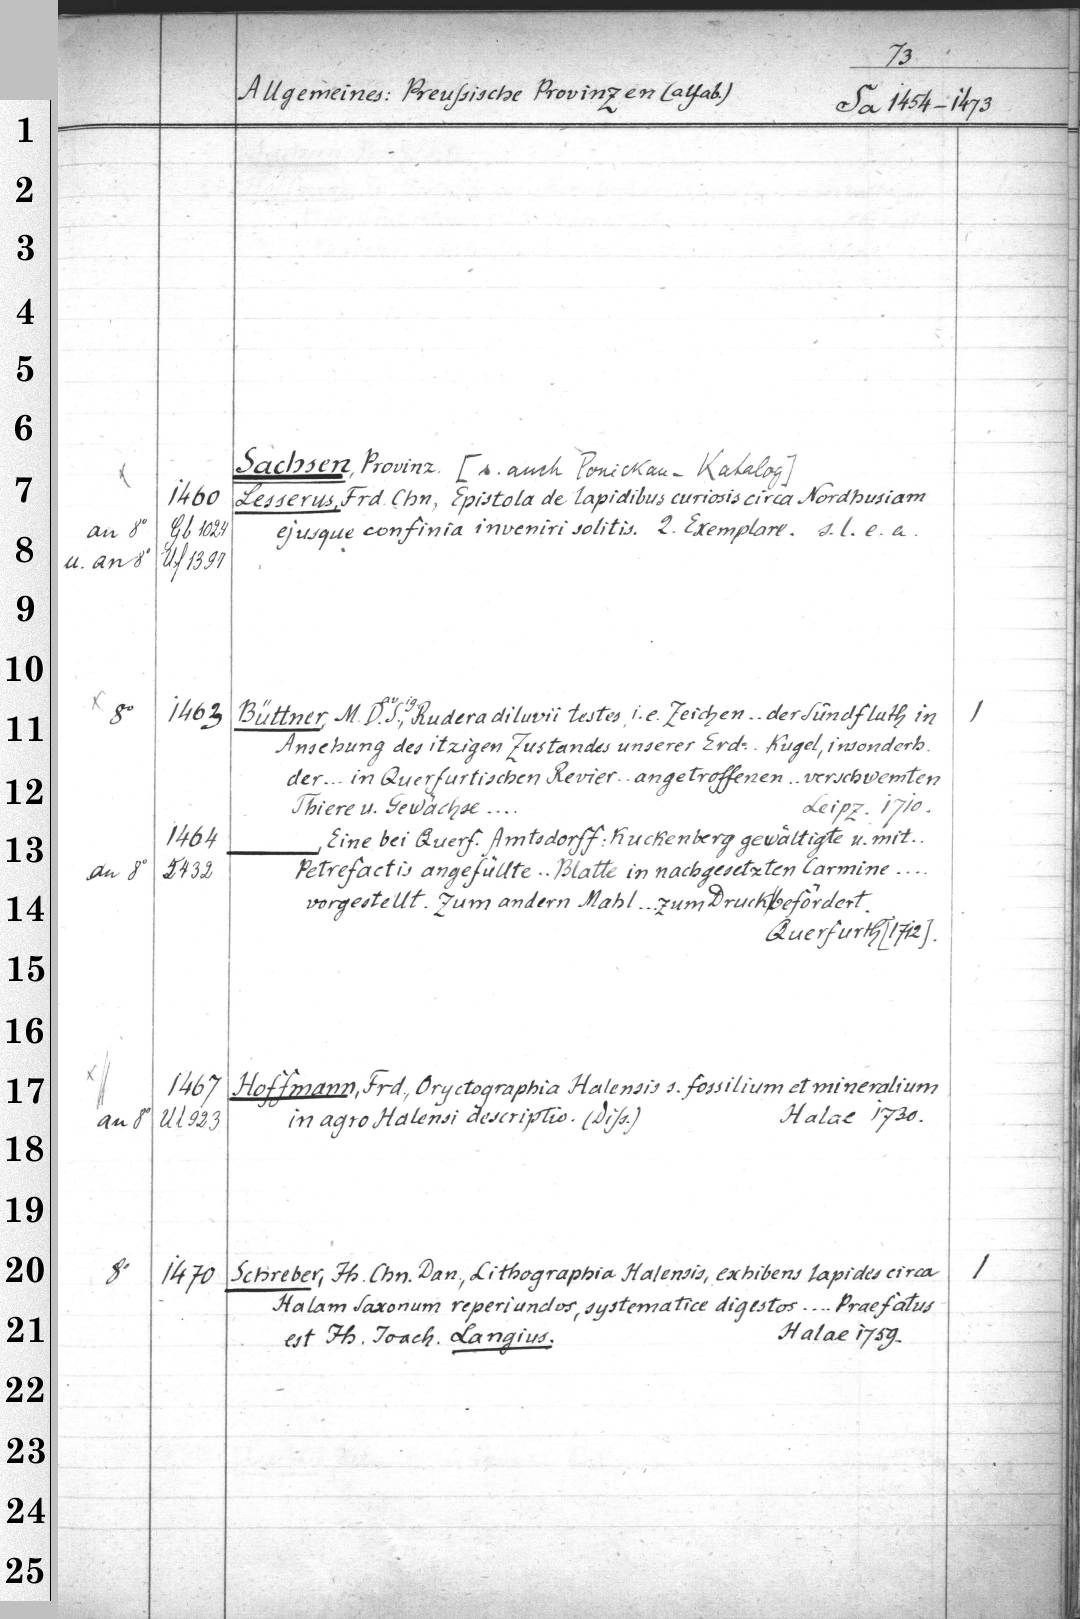 73
Allgemeines: Preußische Provinzen (alfab.) Sa 1454-1473
1
2
3
4
5
6
Sachsen, Provinz. [s. auch Ponickau-Katalog]
7 x 1460 Lesserus, Frd. Chn, Epistola de lapidibus curiosis circa Nordhusiam
an 8° Gb 1024 ejusque confinia inveniri solitis. 2. Exemplare. s. l. e. a.
8 u. an 8° Uf 1397
9
10
x 8° 1463 Büttner, M. D. S., Rudera diluvii testes i. e. Zeichen .. der Sündfluth in 1
11 Ansehung des itzigen Zustandes unserer Erd=.. Kugel, insonderh.
12 der... in Querfurtischen Revier .. angetroffenen .. verschwemten
Thiere u. Gewächse .... Leipz. 1710.
13 1464 , Eine bei Querf. Amtsdorff: Kuckenberg gewältigte u. mit..
an 8° 2432 Petrefactis angefüllte .. Blatte in nachgesetzten Carmine ....
14 vorgestellt. Zum andern Mahl ... zum Druck befördert.
Querfurth [1712].
15
16
17 x 1467 Hoffmann, Frd., Oryctographia Halensis s. fossilium et mineralium
an 8° Ul 923 in agro Halensi descriptio. (Diss.) Halae 1730.
18
19
20 8° 1470 Schreber, Jh. Chn. Dan., Lithographia Halensis, exhibens lapides circa 1
Halam Saxonum reperiundos, systematice digestos .... Praefatus
21 est Jh. Joach. Langius. Halae 1759.
22
23
24
25